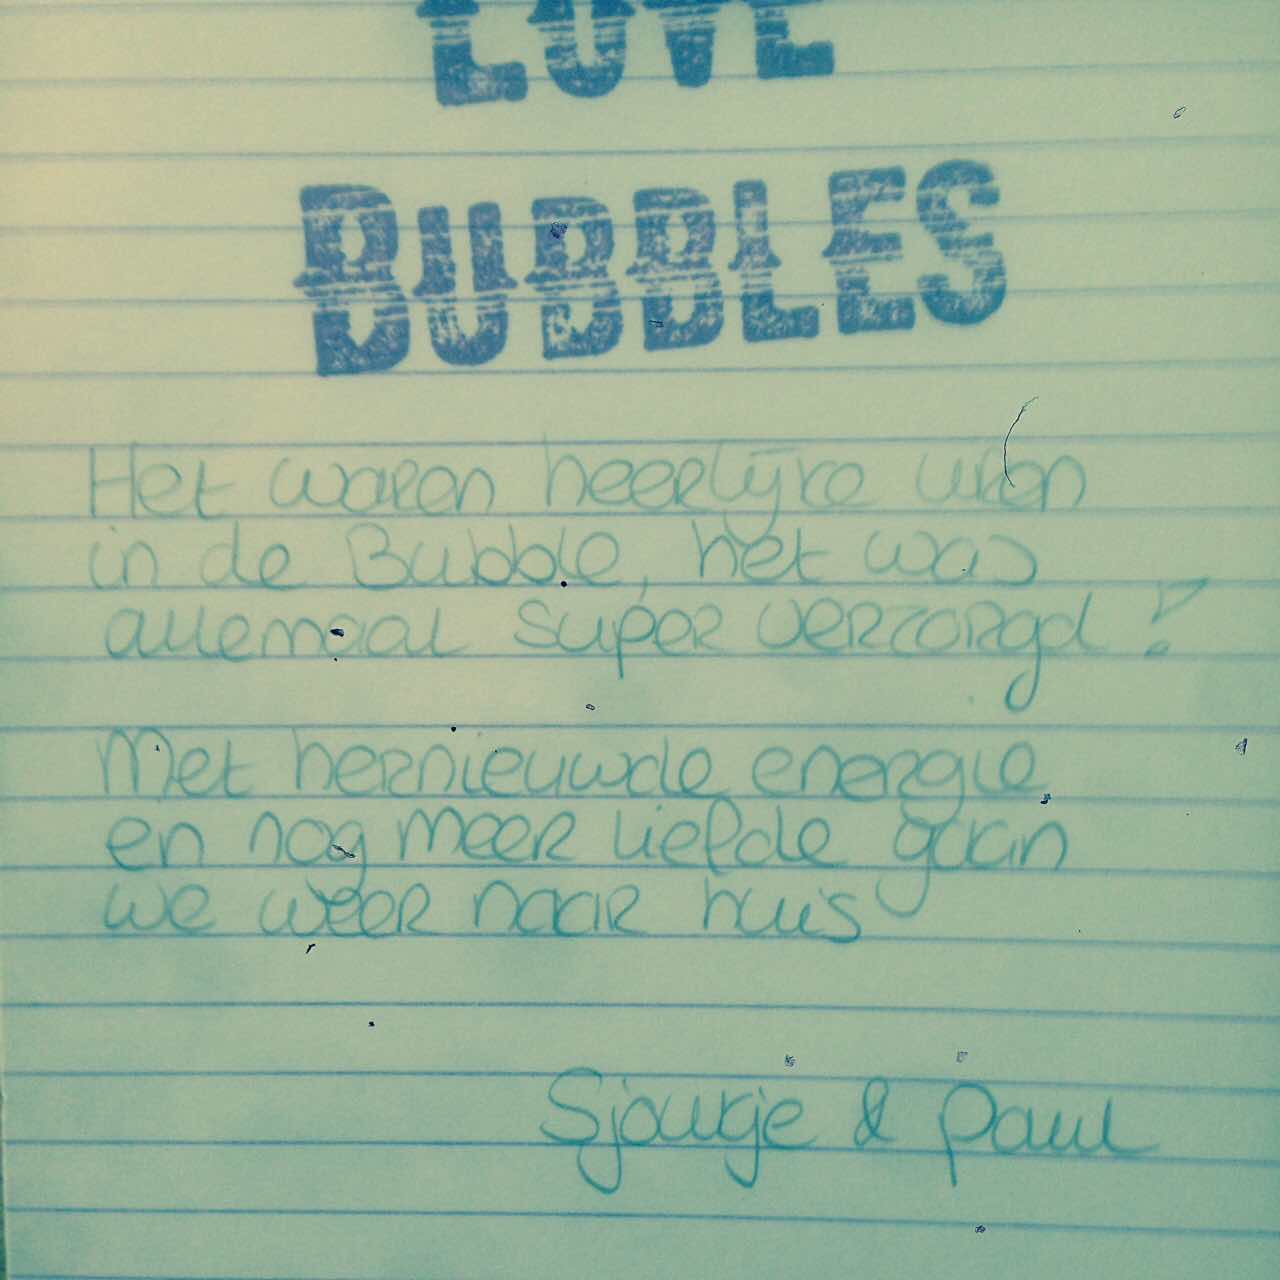 LOVE
BUBBLES
Het waren heerlijke uren
in de Bubble, het was
allemaal super verzorgd!
Met hernieuwde energie
en nog meer liefde gaan
we weer naar huis
Sjoukje & Paul